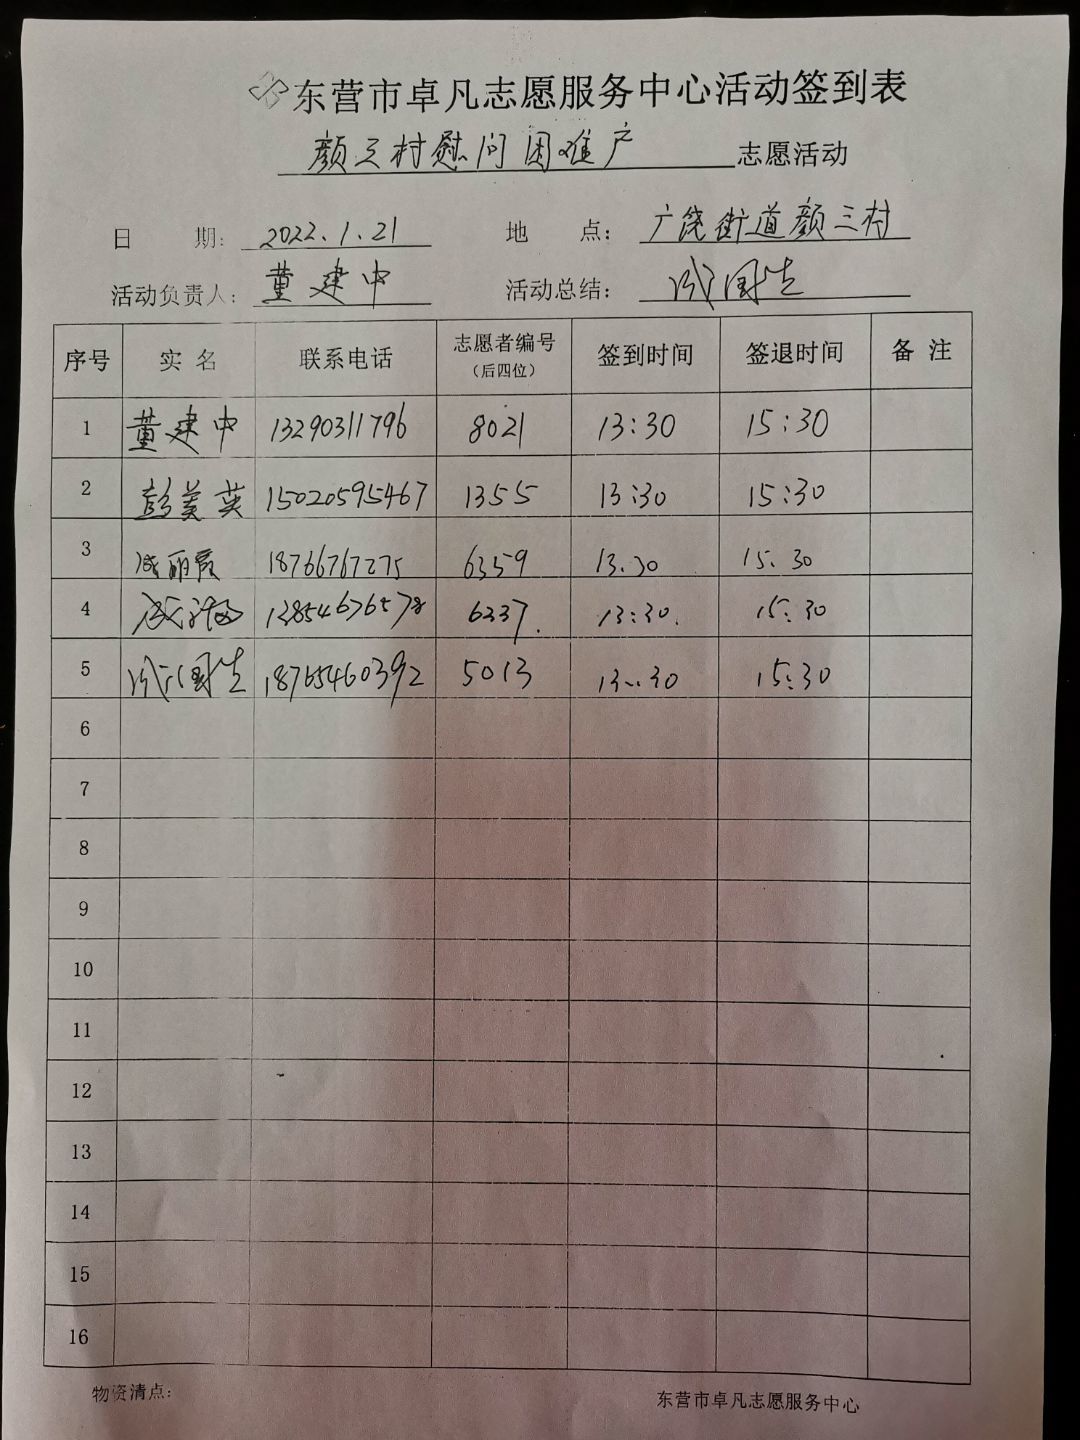 东营市卓凡志愿服务中心活动签到表
颜三村慰问困难户 志愿活动
日 期: 2022.1.21 地 点: 广饶街道颜三村
活动负责人: 董建中 活动总结: 成国生
序号 实 名 联系电话 志愿者编号(后四位) 签到时间 签退时间 备 注
1 董建中 13290311796 8021 13:30 15:30
2 彭美英 15020595467 1355 13:30 15:30
3 成丽霞 18766767275 6359 13:30 15:30
4 成 6337. 13:30. 15:30
5 成国生 18765460392 5013 13:30 15:30
6
7
8
9
10
11
12
13
14
15
16
物资清点: 东营市卓凡志愿服务中心